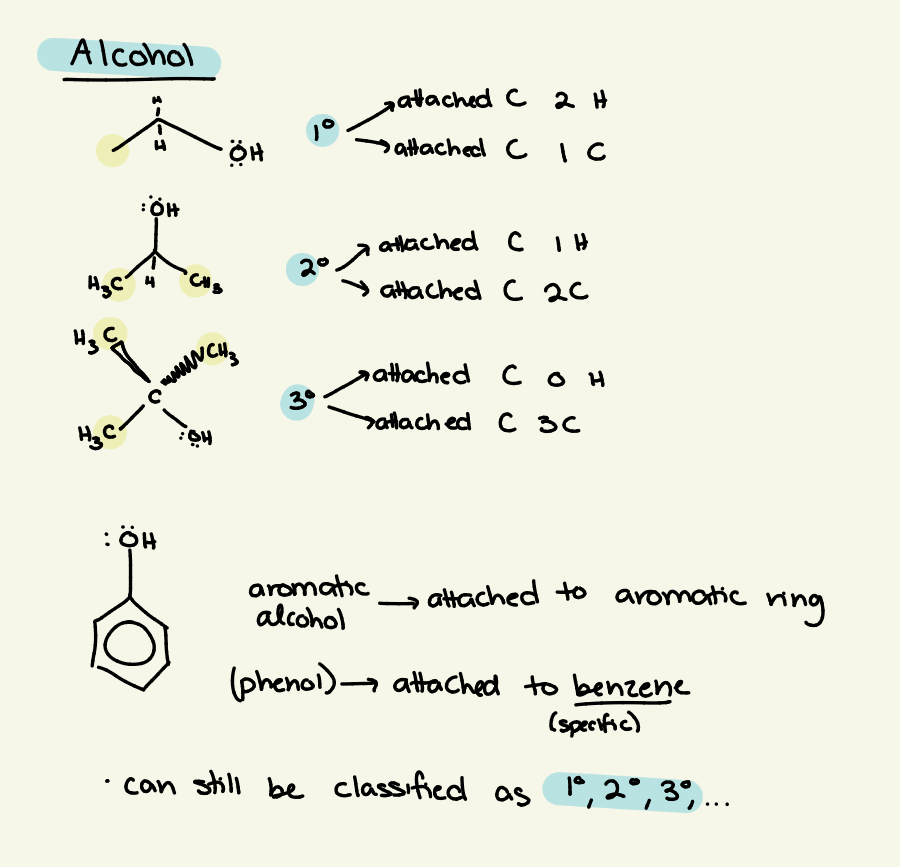 Alcohol
H
H
:ÖH
1° → attached C 2 H
→ attached C 1 C
:ÖH
H₃C H CH₃
2° → attached C 1 H
→ attached C 2C
H₃C
CH₃
C
H₃C :ÖH
3° → attached C 0 H
→ attached C 3C
:ÖH
aromatic
alcohol → attached to aromatic ring
(phenol) → attached to benzene
(specific)
· can still be classified as 1°, 2°, 3°, ...